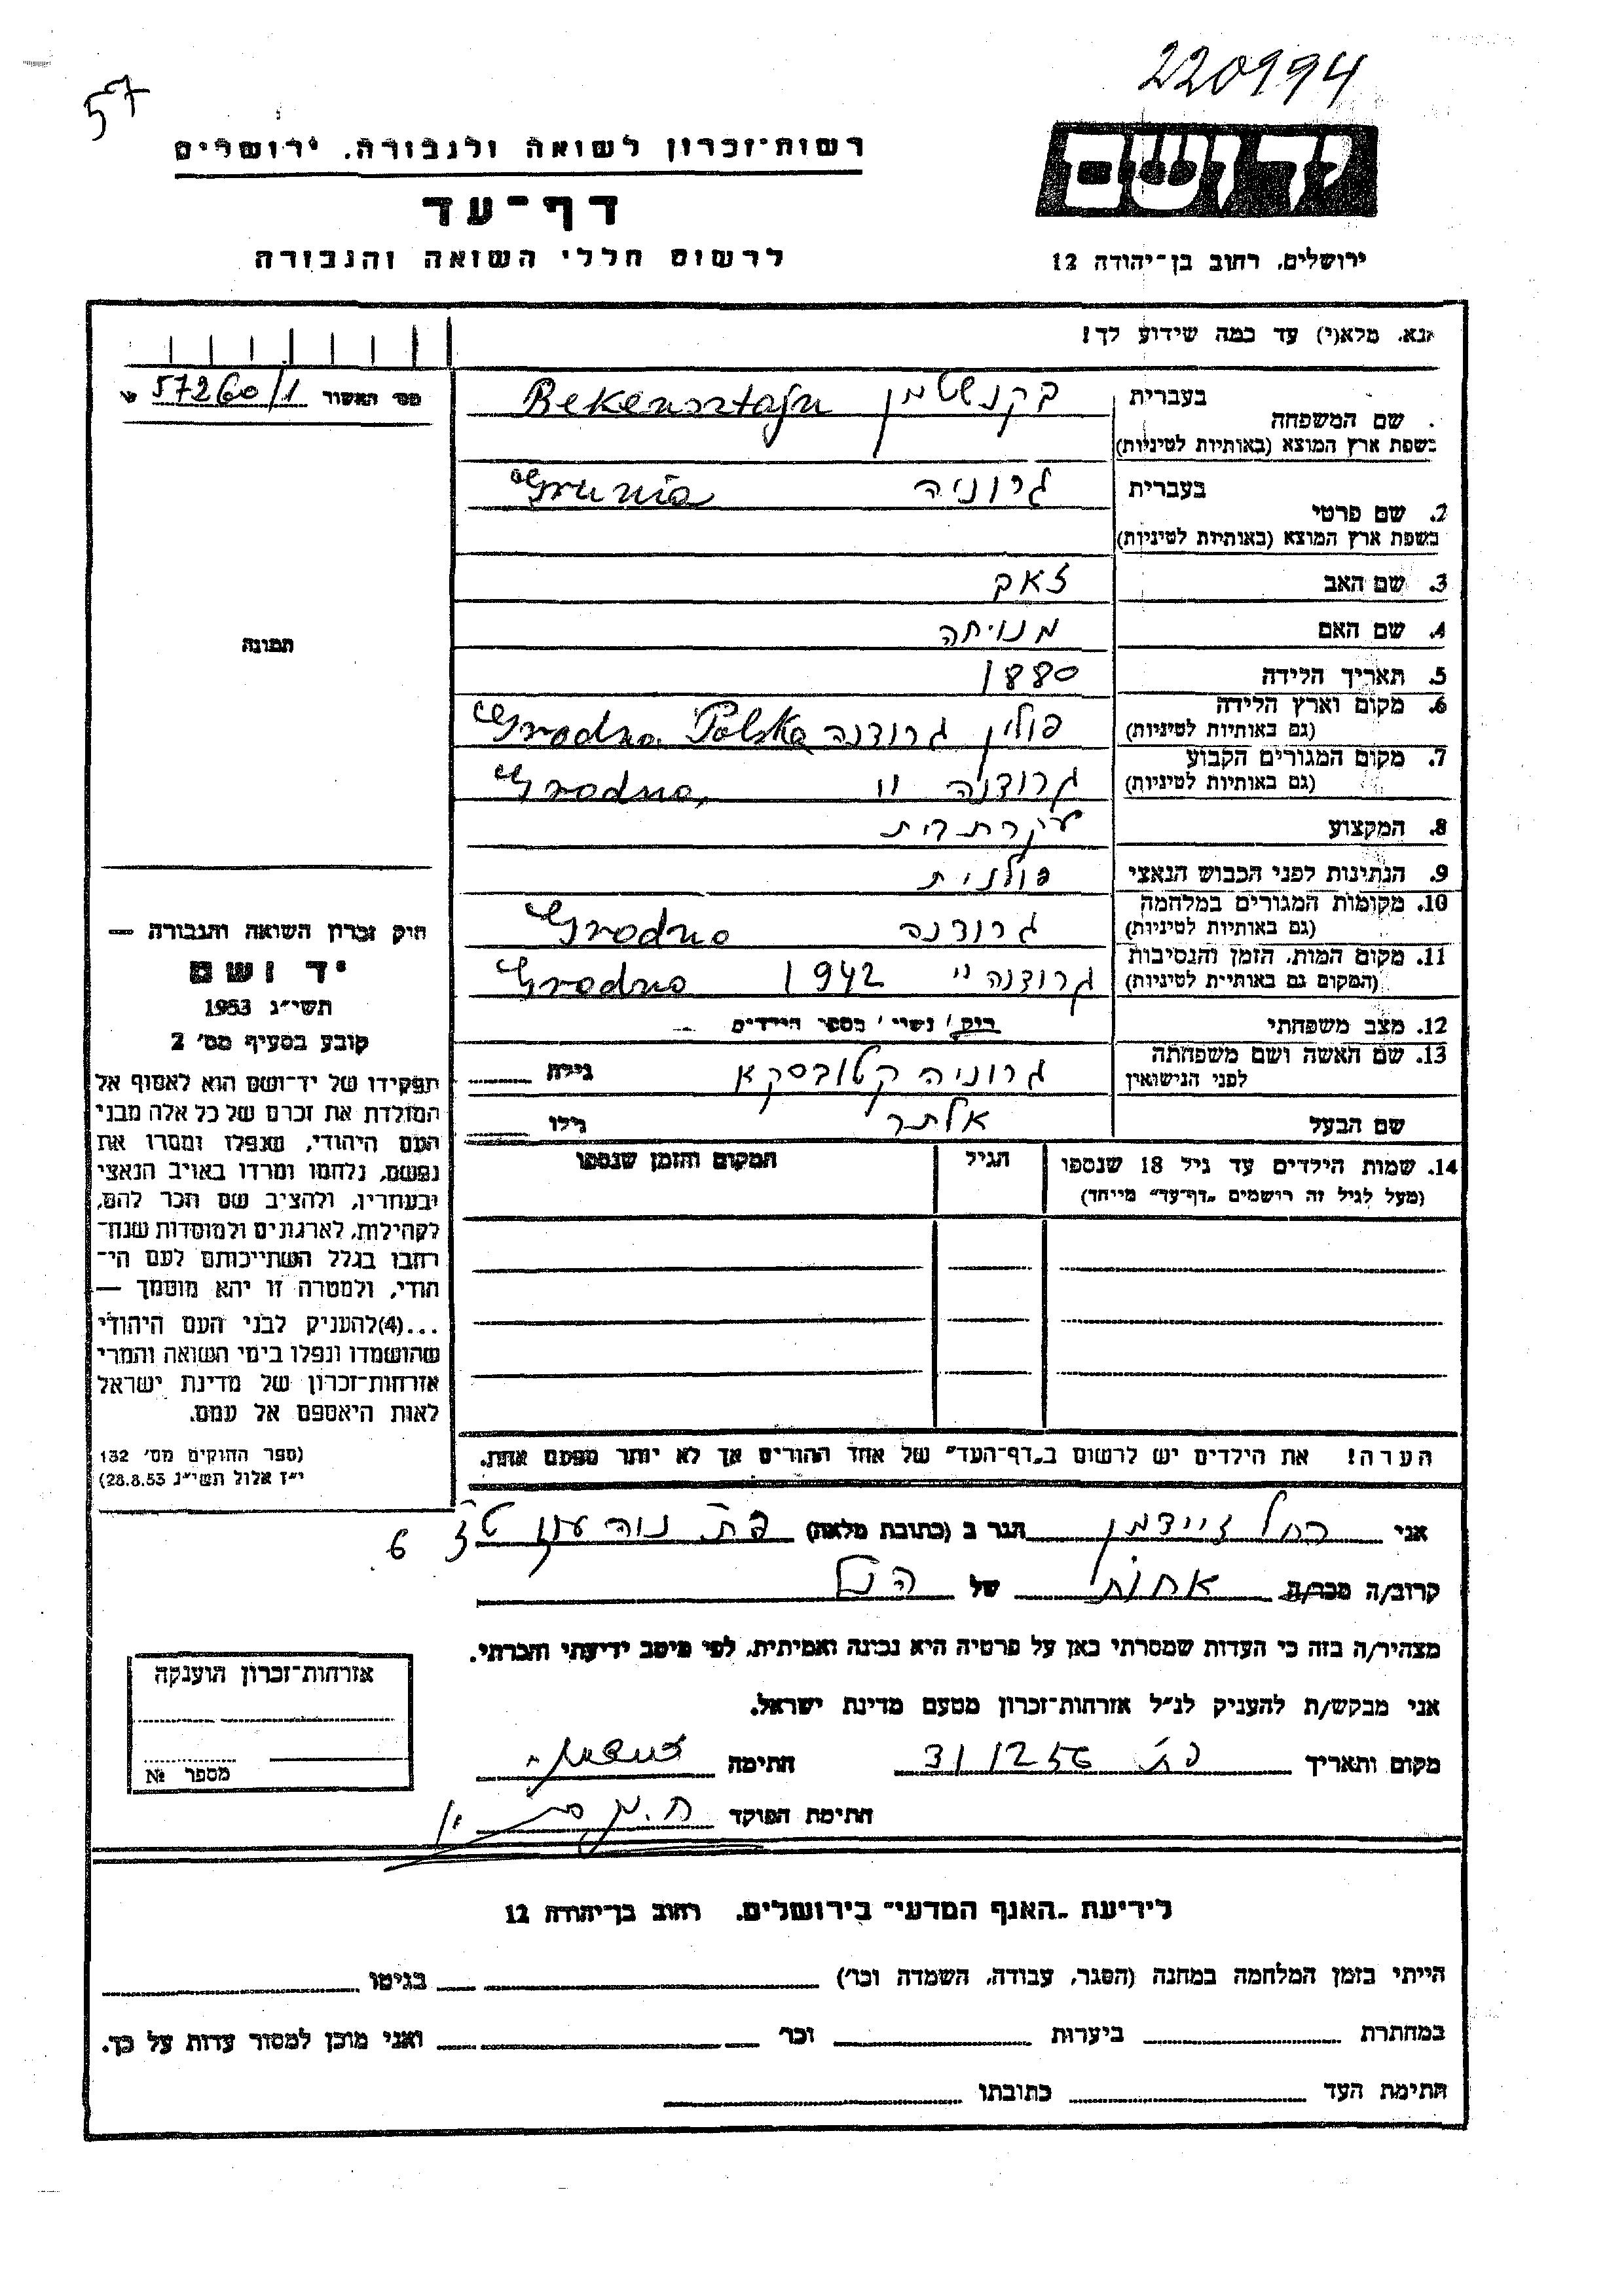 220994
57
יד ושם
רשות־זכרון לשואה ולגבורה, ירושלים
דף־עד
ירושלים, רחוב בן־יהודה 12
לרשום חללי השואה והגבורה
נא, מלא(י) עד כמה שידוע לך!
מס׳ האשור 57260/1
בעברית בקנשטיין Bekensztajn
שם המשפחה
בשפת ארץ המוצא (באותיות לטיניות)
בעברית גרוניה Grunia
2. שם פרטי
בשפת ארץ המוצא (באותיות לטיניות)
3. שם האב זאק
4. שם האם מנויחה
5. תאריך הלידה 1880
6. מקום וארץ הלידה פולין גרודנה Grodno Polska
(גם באותיות לטיניות)
7. מקום המגורים הקבוע גרודנה " Grodno,
(גם באותיות לטיניות)
8. המקצוע עקרת בית
9. הנתינות לפני הכבוש הנאצי פולנית
10. מקומות המגורים במלחמה גרודנה Grodno
(גם באותיות לטיניות)
11. מקום המות, הזמן והנסיבות גרודנה " 1942 Grodno
(המקום גם באותיות לטיניות)
12. מצב משפחתי רוק / נשוי / מספר הילדים
13. שם האשה ושם משפחתה גרוניה קטובסקא גילה
לפני הנישואין
שם הבעל אלתר גילו
14. שמות הילדים עד גיל 18 שנספו הגיל המקום והזמן שנספו
(מעל לגיל זה רושמים „דף־עד״ מייחד)
הערה! את הילדים יש לרשום ב„דף־העד״ של אחד ההורים אך לא יותר מפעם אחת.
תמונה
חוק זכרון השואה והגבורה —
יד ושם
תשי״ג 1953
קובע בסעיף מס׳ 2
תפקידו של יד־ושם הוא לאסוף אל
המולדת את זכרם של כל אלה מבני
העם היהודי, שנפלו ומסרו את
נפשם, נלחמו ומרדו באויב הנאצי
ובעוזריו, ולהציב שם וזכר להם,
לקהילות, לארגונים ולמוסדות שנח־
רחבו בגלל השתייכותם לעם הי־
הודי, ולמטרה זו יהא מוסמך —
...(4)להעניק לבני העם היהודי
שהושמדו ונפלו בימי השואה והמרי
אזרחות־זכרון של מדינת ישראל
לאות היאספם אל עמם.
(ספר החוקים מס׳ 132
י״ז אלול תשי״ג 28.8.53)
אני רחל זיידמן הגר ב (כתובת מלאה) פ״ת 6
קרוב/ה מכר/ה אחות של הנ״ל
מצהיר/ה בזה כי העדות שמסרתי כאן על פרטיה היא נכונה ואמיתית, לפי מיטב ידיעתי והכרתי.
אני מבקש/ת להעניק לנ״ל אזרחות־זכרון מטעם מדינת ישראל.
מקום ותאריך פ״ת 31/12 56 חתימה
חתימת הפוקד
אזרחות־זכרון הוענקה
מספר №
לידיעת „האגף המדעי״ בירושלים, רחוב בן־יהודה 12
הייתי בזמן המלחמה במחנה (הסגר, עבודה, השמדה וכו׳) בגיטו
במחתרת ביערות וכו׳ ואני מוכן למסור עדות על כך.
חתימת העד כתובתו